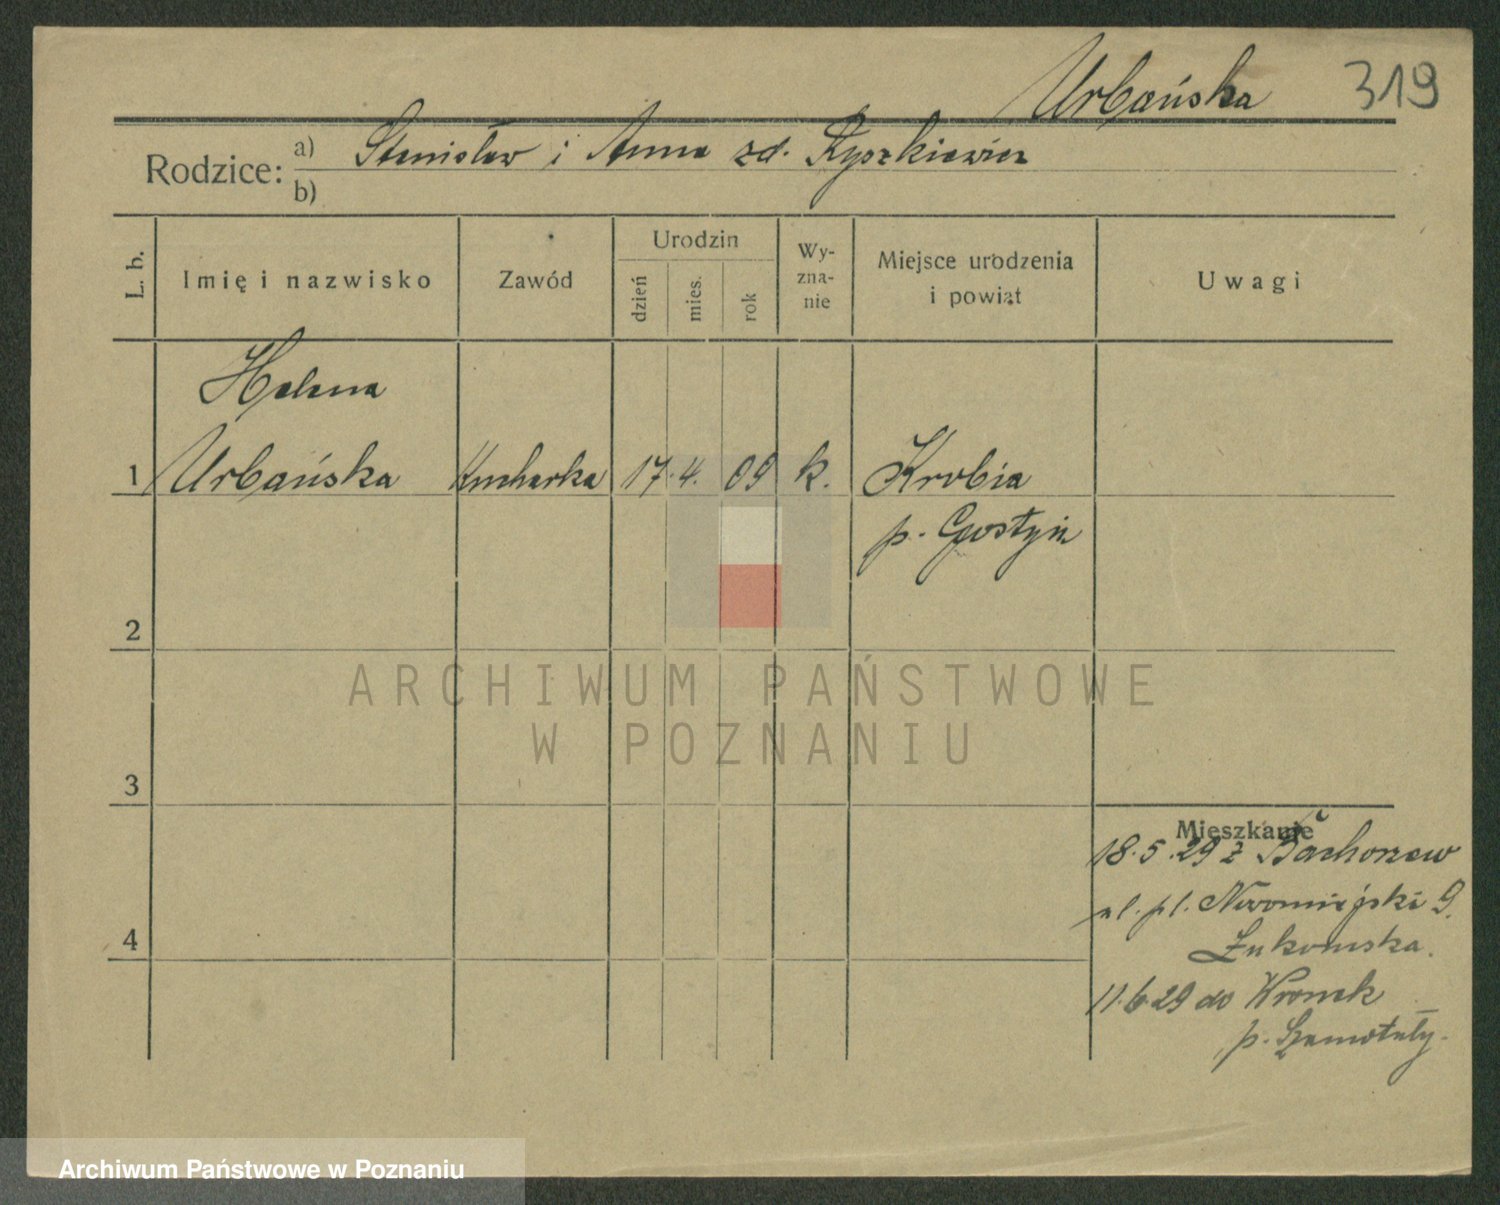 Urbańska 319
Rodzice: a) Stanisław i Anna zd. Ryszkiewicz
b)
L. b. Imię i nazwisko Zawód Urodzin dzień mies. rok Wy-zna-nie Miejsce urodzenia i powiat Uwagi
Helena
1 Urbańska Kucharka 17. 4. 09 k. Krobia
p. Gostyń
2
ARCHIWUM PAŃSTWOWE
W POZNANIU
3
Mieszkanie
18.5.29 z Bachorzew
ul. pl. Nowomiejski 9.
4
Łukomska.
11.6.29 do Wronek
p. Szamotuły.
Archiwum Państwowe w Poznaniu